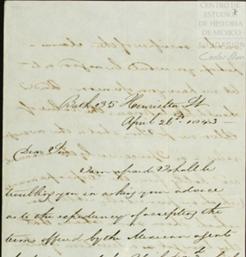 CENTRO
DE ESTUDIOS
DE HISTORIA
DE MÉXICO
Bath 35 Henrietta St
April 26th 1843
Dear Sir
I am afraid I shall be
troubling you in asking you advice
as to the expediency of accepting the
terms offered by the Mexican agents